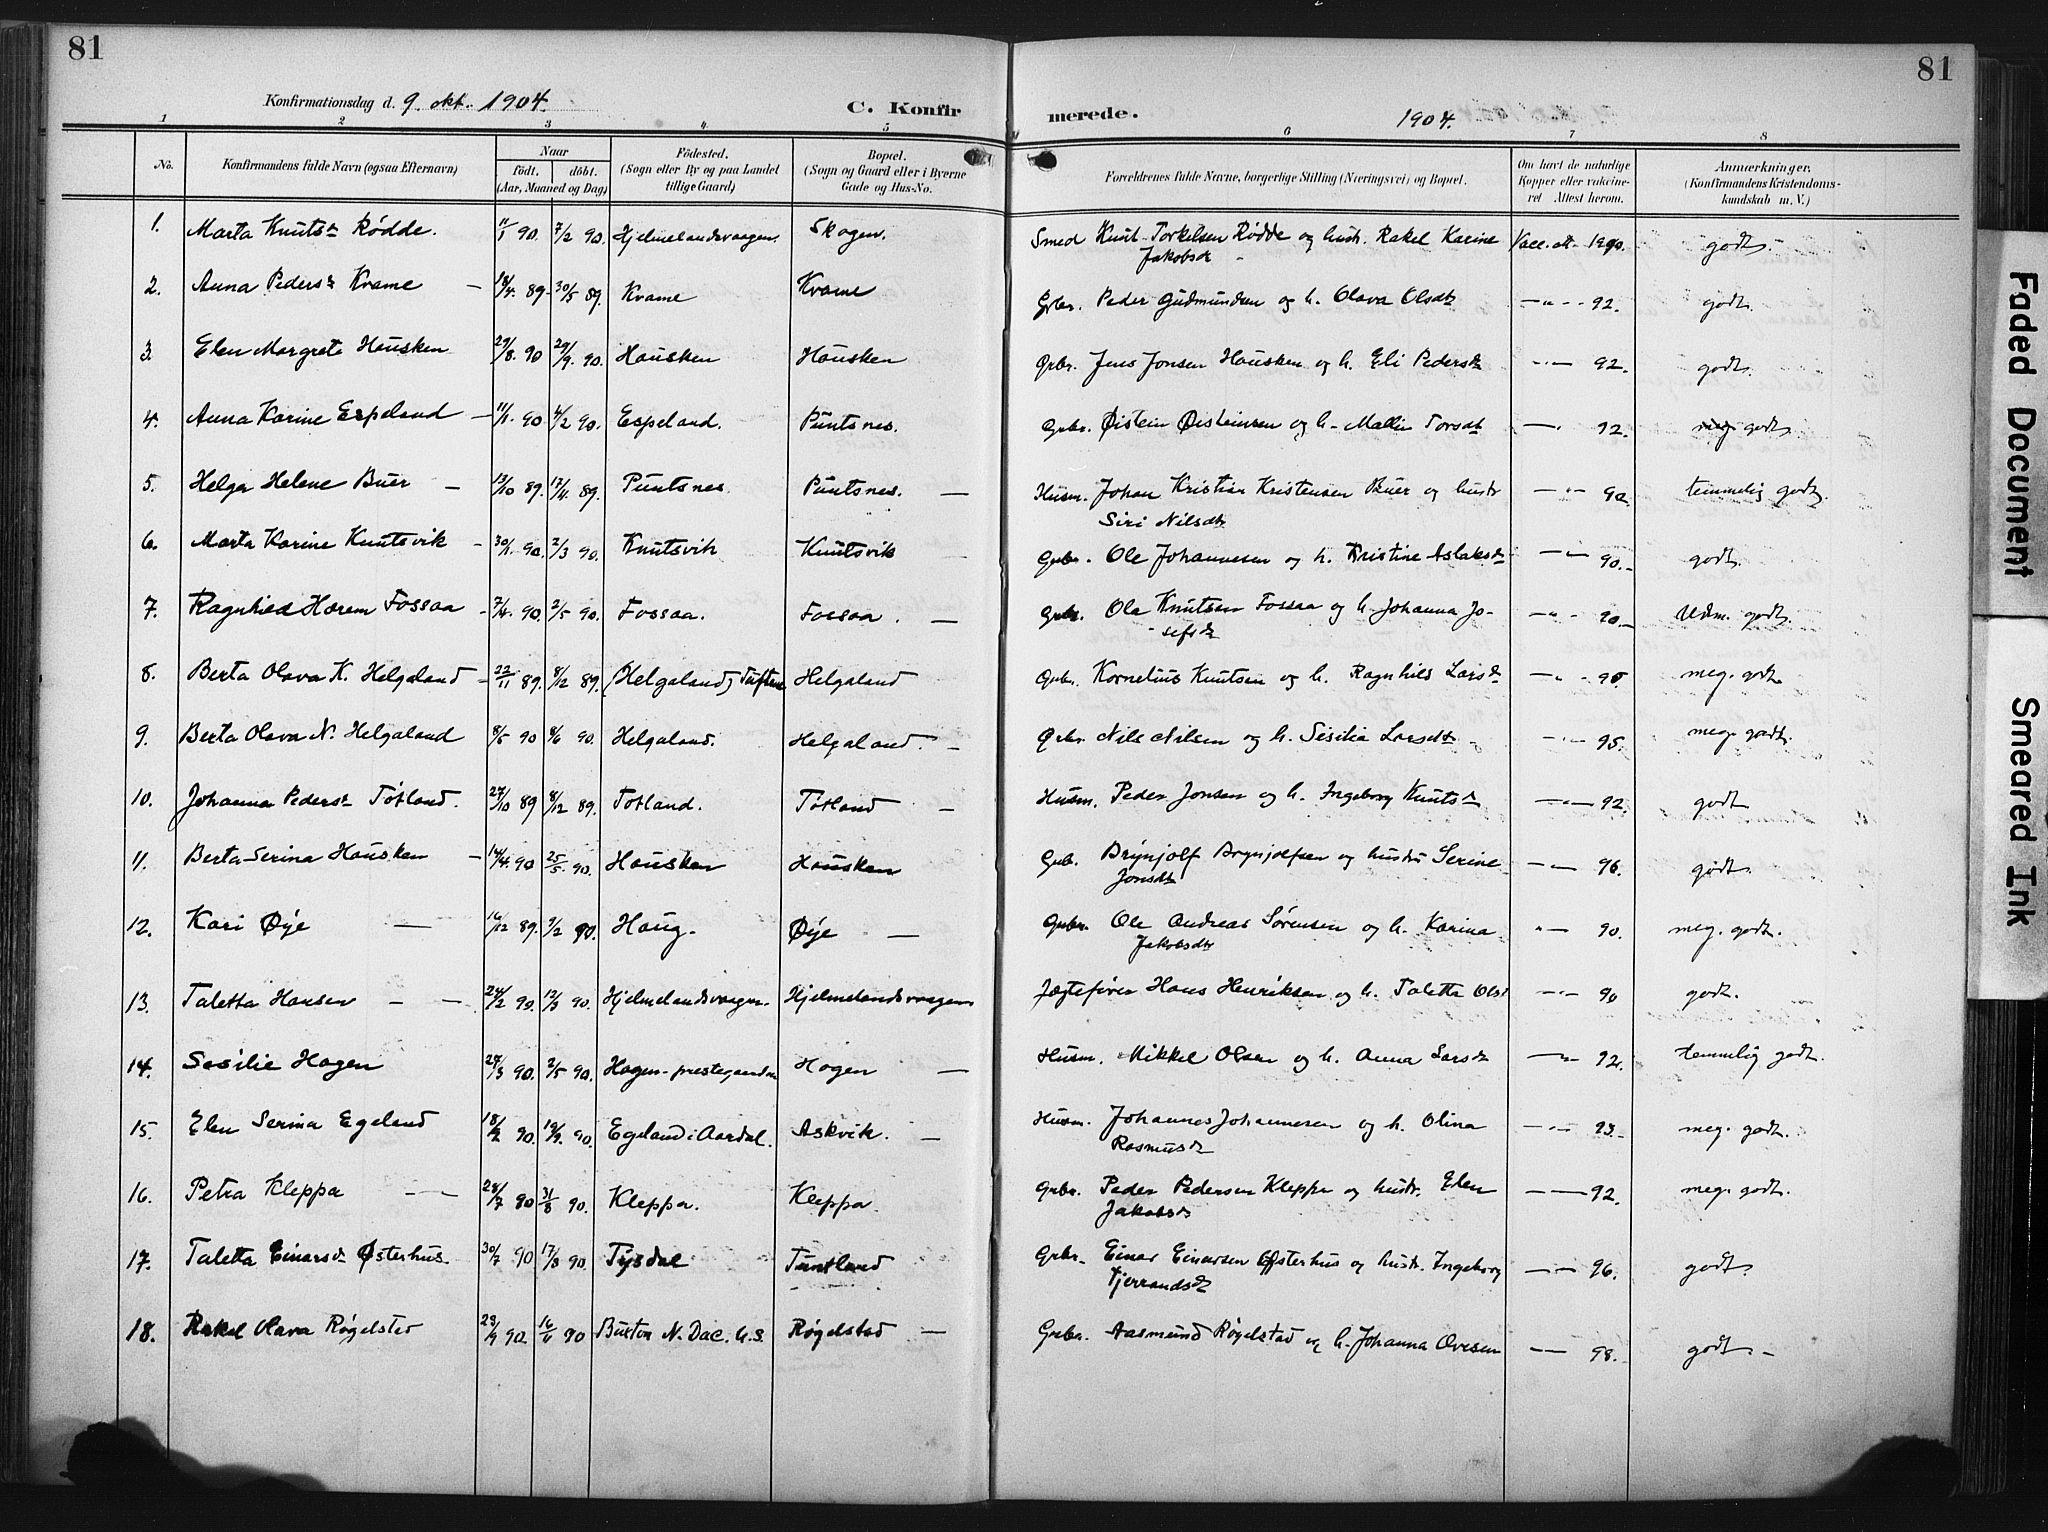 81
81
Konfirmationsdag d. 9. okt. 1904.
C. Konfirmerede.
1904.
1 2 3 4 5 6 7 8
No. | Konfirmandens fulde Navn (ogsaa Efternavn) | Naar födt. döbt. (Aar, Maaned og Dag) | Födested. (Sogn eller By og paa Landet tillige Gaard) | Bopæl. (Sogn og Gaard eller i Byerne Gade og Hus-No. | Forældrenes fulde Navne, borgerlige Stilling (Næringsvei) og Bopæl. | Om havt de naturlige Kopper eller vakcineret Attest herom. | Anmærkninger. (Konfirmandens Kristendomskundskab m. V.)
1. Marta Knutsdr Rødde. 11/1 90. 7/2 90. Hjelmelandsvaagen. Skogen. Smed Knut Torkelsen Rødde og hustr. Rakel Karine Jakobsdr Vacc. att. 1890. godt.
2. Anna Pedersdr Kvame – 18/4. 89 30/5 89. Kvame Kvame Grbr. Peder Gudmundsen og h. Olava Olsdtr – " – 92. godt.
3. Elen Margrete Hausken 29/8. 90 29/9. 90. Hausken Hausken Grbr. Jens Jonsen Hausken og h. Eli Pedersdtr – " – 92. godt.
4. Anna Karine Espeland – 11/1. 90 4/2 90. Espeland. Puntsnes. Grbr. Øistein Øisteinsen og h. Mallin Torsdtr – " 92. meg. godt.
5. Helga Helene Buer – 13/10 89. 17/4. 89. Puntsnes. Puntsnes. – Husm. Johan Kristian Kristensen Buer og hustr Siri Nilsdtr – " – 90. temmelig godt.
6. Marta Karine Knutsvik – 30/1. 90. 2/3 90. Knutsvik Knutsvik Grbr. Ole Johannesen og h. Kristine Aslaksdtr – " – 90. godt.
7. Ragnhild Harem Fossaa – 7/4. 90. 2/5 90. Fossaa. Fossaa. – Grbr. Ole Knutsen Fossaa og h. Johanna Josefsdtr – " – 90. Udm. godt.
8. Berta Olava K. Helgaland – 22/11 89. 8/12 89. (Helgaland) Tuftene Helgaland Grbr. Kornelius Knutsen og h. Ragnhild Larsdtr – " – 95. meg. godt.
9. Berta Olava N. Helgaland 8/5 90 8/6 90. Helgaland. Helgaland. – Grbr Nils Nilsen og h. Sesilia Larsdtr – " – 95. meg. godt.
10. Johanna Pedersdr Tøtland. 27/10 89 8/12 89. Totland. Tøtland – Husm. Peder Jonsen og h. Ingeborg Knutsdr – " – 92. godt
11. Berta Serina Hausken – 14/4. 90 25/5. 90. Hausken Hausken Grbr. Brynjolf Brynjolfsen og hustr Serine Jonsdtr – " – 96. godt.
12. Kari Øye – 16/12 89. 7/2 90. Haug. Øye – Grbr. Ole Andreas Sørensen og h. Karina Jakobsdtr " – 90. meg. godt.
13. Taletta Hansen – – 24/2 90. 12/3 90. Hjelmelandsvaagen. Hjelmelandsvaagen Jægtefører Hans Henriksen og h. Taletta Olsdr – " – 90 godt.
14. Sesilie Hagen 27/3 90. 2/5 90. Hagen – prestegaarden Hagen – Husm. Mikkel Olsen og h. Anna Larsdr – " – 92. temmelig godt.
15. Elen Serina Egeland 18/7 90. 19/9. 90. Egeland i Aardal. Askvik. – Husm. Johannes Johannesen og h. Olina Rasmusdr – " – 93. meg. godt.
16. Petra Kleppa – – 28/7 90 31/8 90. Kleppa. Kleppa. Grbr. Peder Pedersen Kleppa og hustr. Elen Jakobsdr – – 92. meg. godt.
17. Taletta Einarsdr Østerhus. 30/7 90 17/8 90. Tysdal Tuntland Grbr. Einar Einarsen Østerhus og hustr. Ingeborg Tjerrandsdr – – 96. godt.
18. Rakel Olava Røgelstad 23/9 90. 16/11 90 Buxton N. Dac. U.S. Røgelstad – Grbr. Aasmund Røgelstad og h. Johanna Ovesen – – 98. godt. –
Faded Document
Smeared Ink